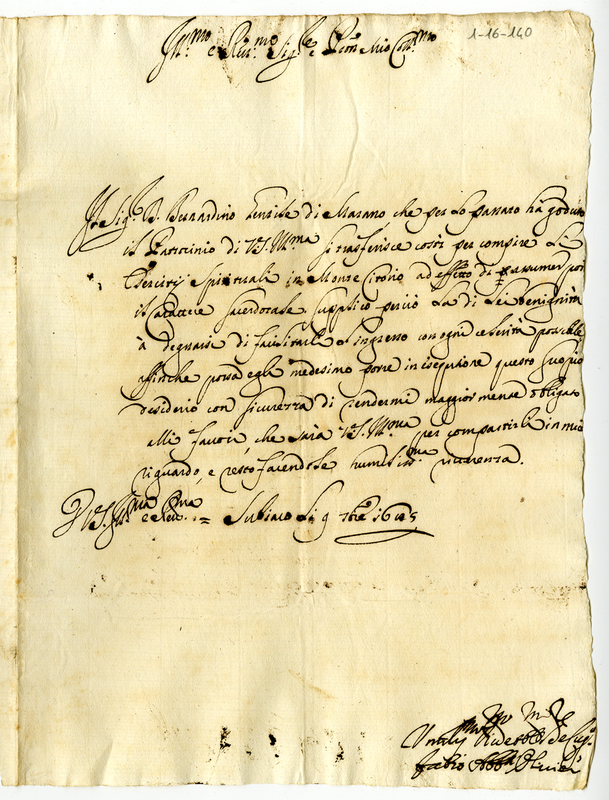 Ill.mo e Rev.mo Sig.re e Pron Mio Coll.mo
1-16-140
Il Sig.r D. Bernardino Gentile di Marano che per lo passato hà goduto
il Patrocinio di VS. Ill.ma si trasferisce costì per compire li
Esercitij spirituali in Monte Citorio ad effetto di assumer poi
il carattere sacerdotale. Supplico perciò la di Lei benignità
à degnarsi di facilitarli l'ingresso con ogni celerità possibile
affinche possa egli medesimo porre in esequtione questo suo pio
desiderio con sicurezza di rendermi maggiormente obligato
alli favori, che sarà VS. Ill.ma per compartirli in mio
riguardo, e resto facendole humiliss.ma riverenza.
Di VS. Ill.ma e Rev.ma = Subiaco li 9
Fabio Abb.